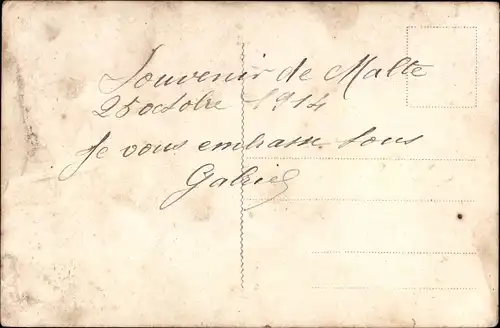 Souvenir de Malte
25 octobre 1914
Je vous embrasse tous
Gabriel